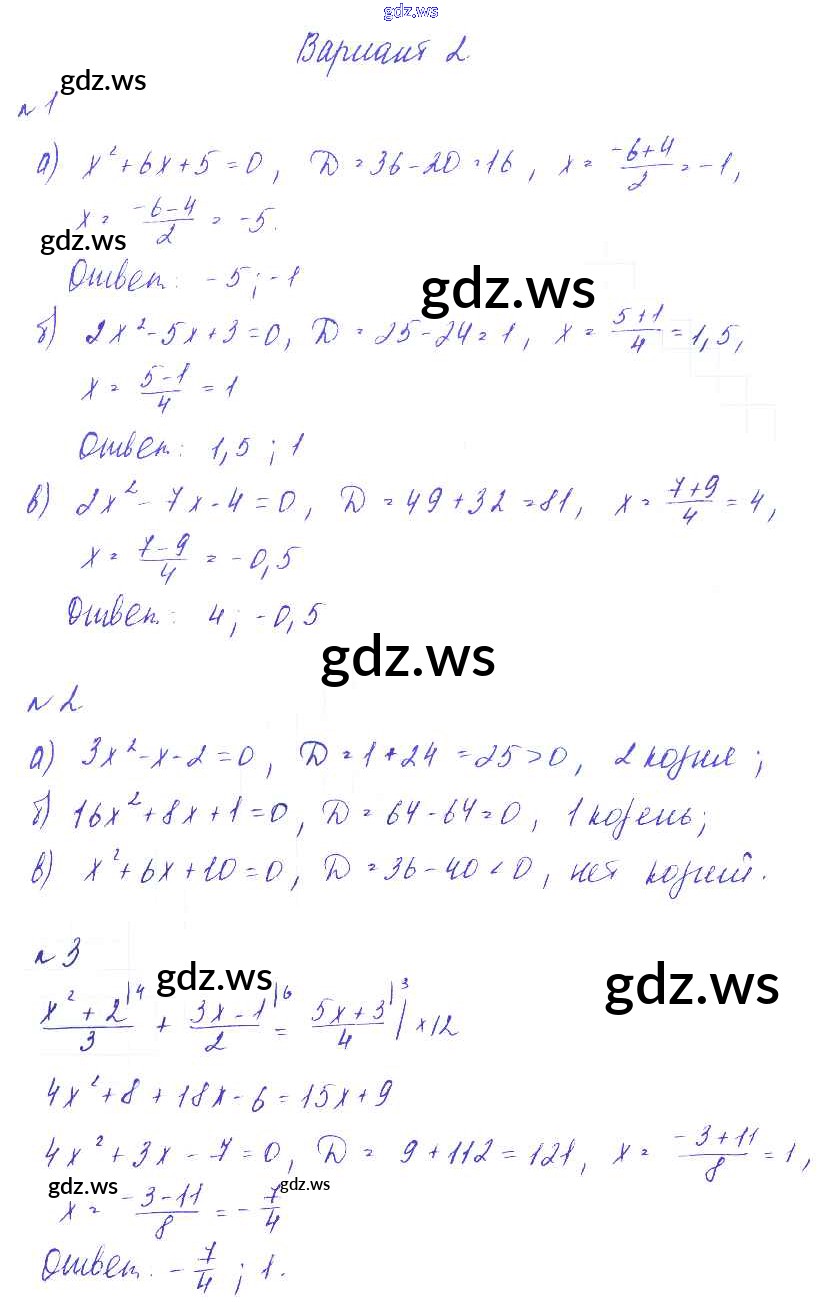 gdz.ws
Вариант 2
gdz.ws
№ 1
а) x² + 6x + 5 = 0, D = 36 - 20 = 16, x = (-6+4)/2 = -1,
x = (-6-4)/2 = -5.
gdz.ws
Ответ: -5; -1
gdz.ws
б) 2x² - 5x + 3 = 0, D = 25 - 24 = 1, x = (5+1)/4 = 1,5,
x = (5-1)/4 = 1
Ответ: 1,5; 1
в) 2x² - 7x - 4 = 0, D = 49 + 32 = 81, x = (7+9)/4 = 4,
x = (7-9)/4 = -0,5
Ответ: 4; -0,5
gdz.ws
№ 2
а) 3x² - x - 2 = 0, D = 1 + 24 = 25 > 0, 2 корня;
б) 16x² + 8x + 1 = 0, D = 64 - 64 = 0, 1 корень;
в) x² + 6x + 10 = 0, D = 36 - 40 < 0, нет корней.
№ 3
gdz.ws
gdz.ws
(x² + 2)/3 |4 + (3x - 1)/2 |6 = (5x + 3)/4 |3 | ×12
4x² + 8 + 18x - 6 = 15x + 9
4x² + 3x - 7 = 0, D = 9 + 112 = 121, x = (-3+11)/8 = 1,
gdz.ws
gdz.ws
x = (-3-11)/8 = -7/4
Ответ. -7/4; 1.